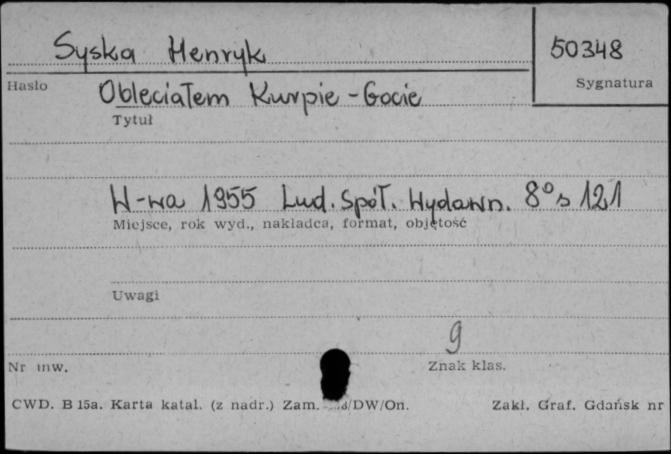 Syska Henryk 50348
Hasło Sygnatura
Obleciałem Kurpie-Gocie
Tytuł
W-wa 1955 Lud. Spół. Wydawn. 8° s 121
Miejsce, rok wyd., nakładca, format, objętość
Uwagi
9
Nr inw. Znak klas.
CWD. B 15a. Karta katal. (z nadr.) Zam. /DW/On. Zakł. Graf. Gdańsk nr